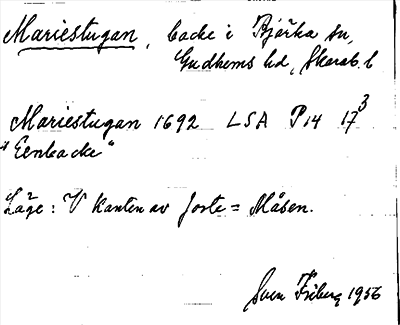 Mariestugan, backe i Bjärka sn,
Gudhems hd, Skarab. l
Mariestugan 1692 LSA P14 17³
"Eenbacke"
Läge: V kanten av Jorste = Måsen.
Sven Friberg 1956